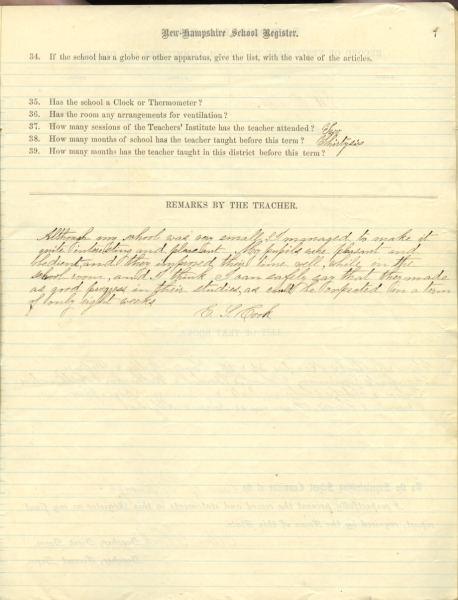 New-Hampshire School Register.
9
34. If the school has a globe or other apparatus, give the list, with the value of the articles.
35. Has the school a Clock or Thermometer?
36. Has the room any arrangements for ventilation?
37. How many sessions of the Teachers' Institute has the teacher attended? Two
38. How many months of school has the teacher taught before this term? Thirtysix
39. How many months has the teacher taught in this district before this term?
REMARKS BY THE TEACHER.
Although my school was very small, I managed to make it
quite interesting and pleasant. My pupils were pleasant and
obedient, and they improved their time well, while in the
school room, and I think I can safely say that they made
as good progress in their studies, as could be expected in a term
of only eight weeks
E. S. Cook